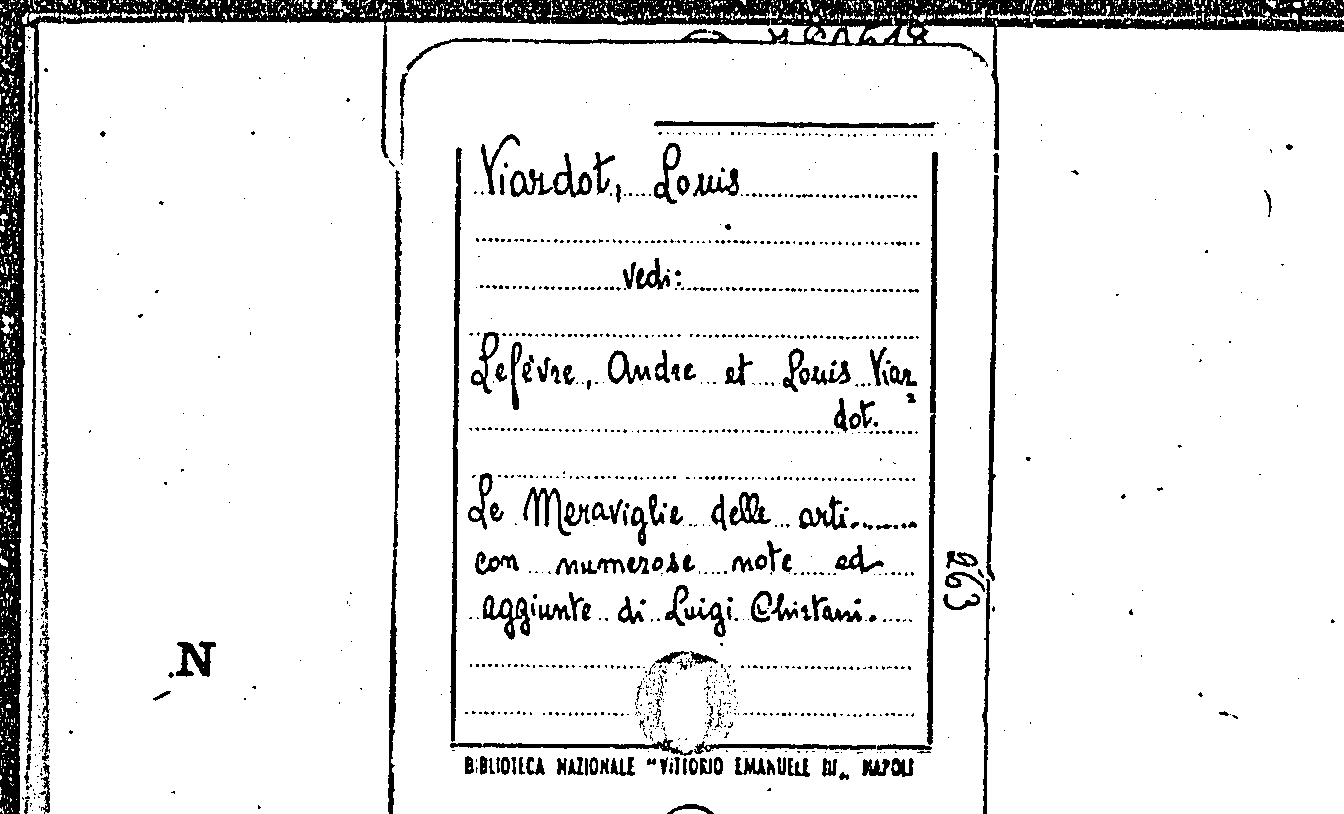 Viardot, Louis
vedi:
Lefèvre, Andre et Louis Viar=
dot.
Le Meraviglie delle arti........
con numerose note ed
aggiunte di Luigi Chirtani.
263
N
BIBLIOTECA NAZIONALE "VITTORIO EMANUELE III„ NAPOLI